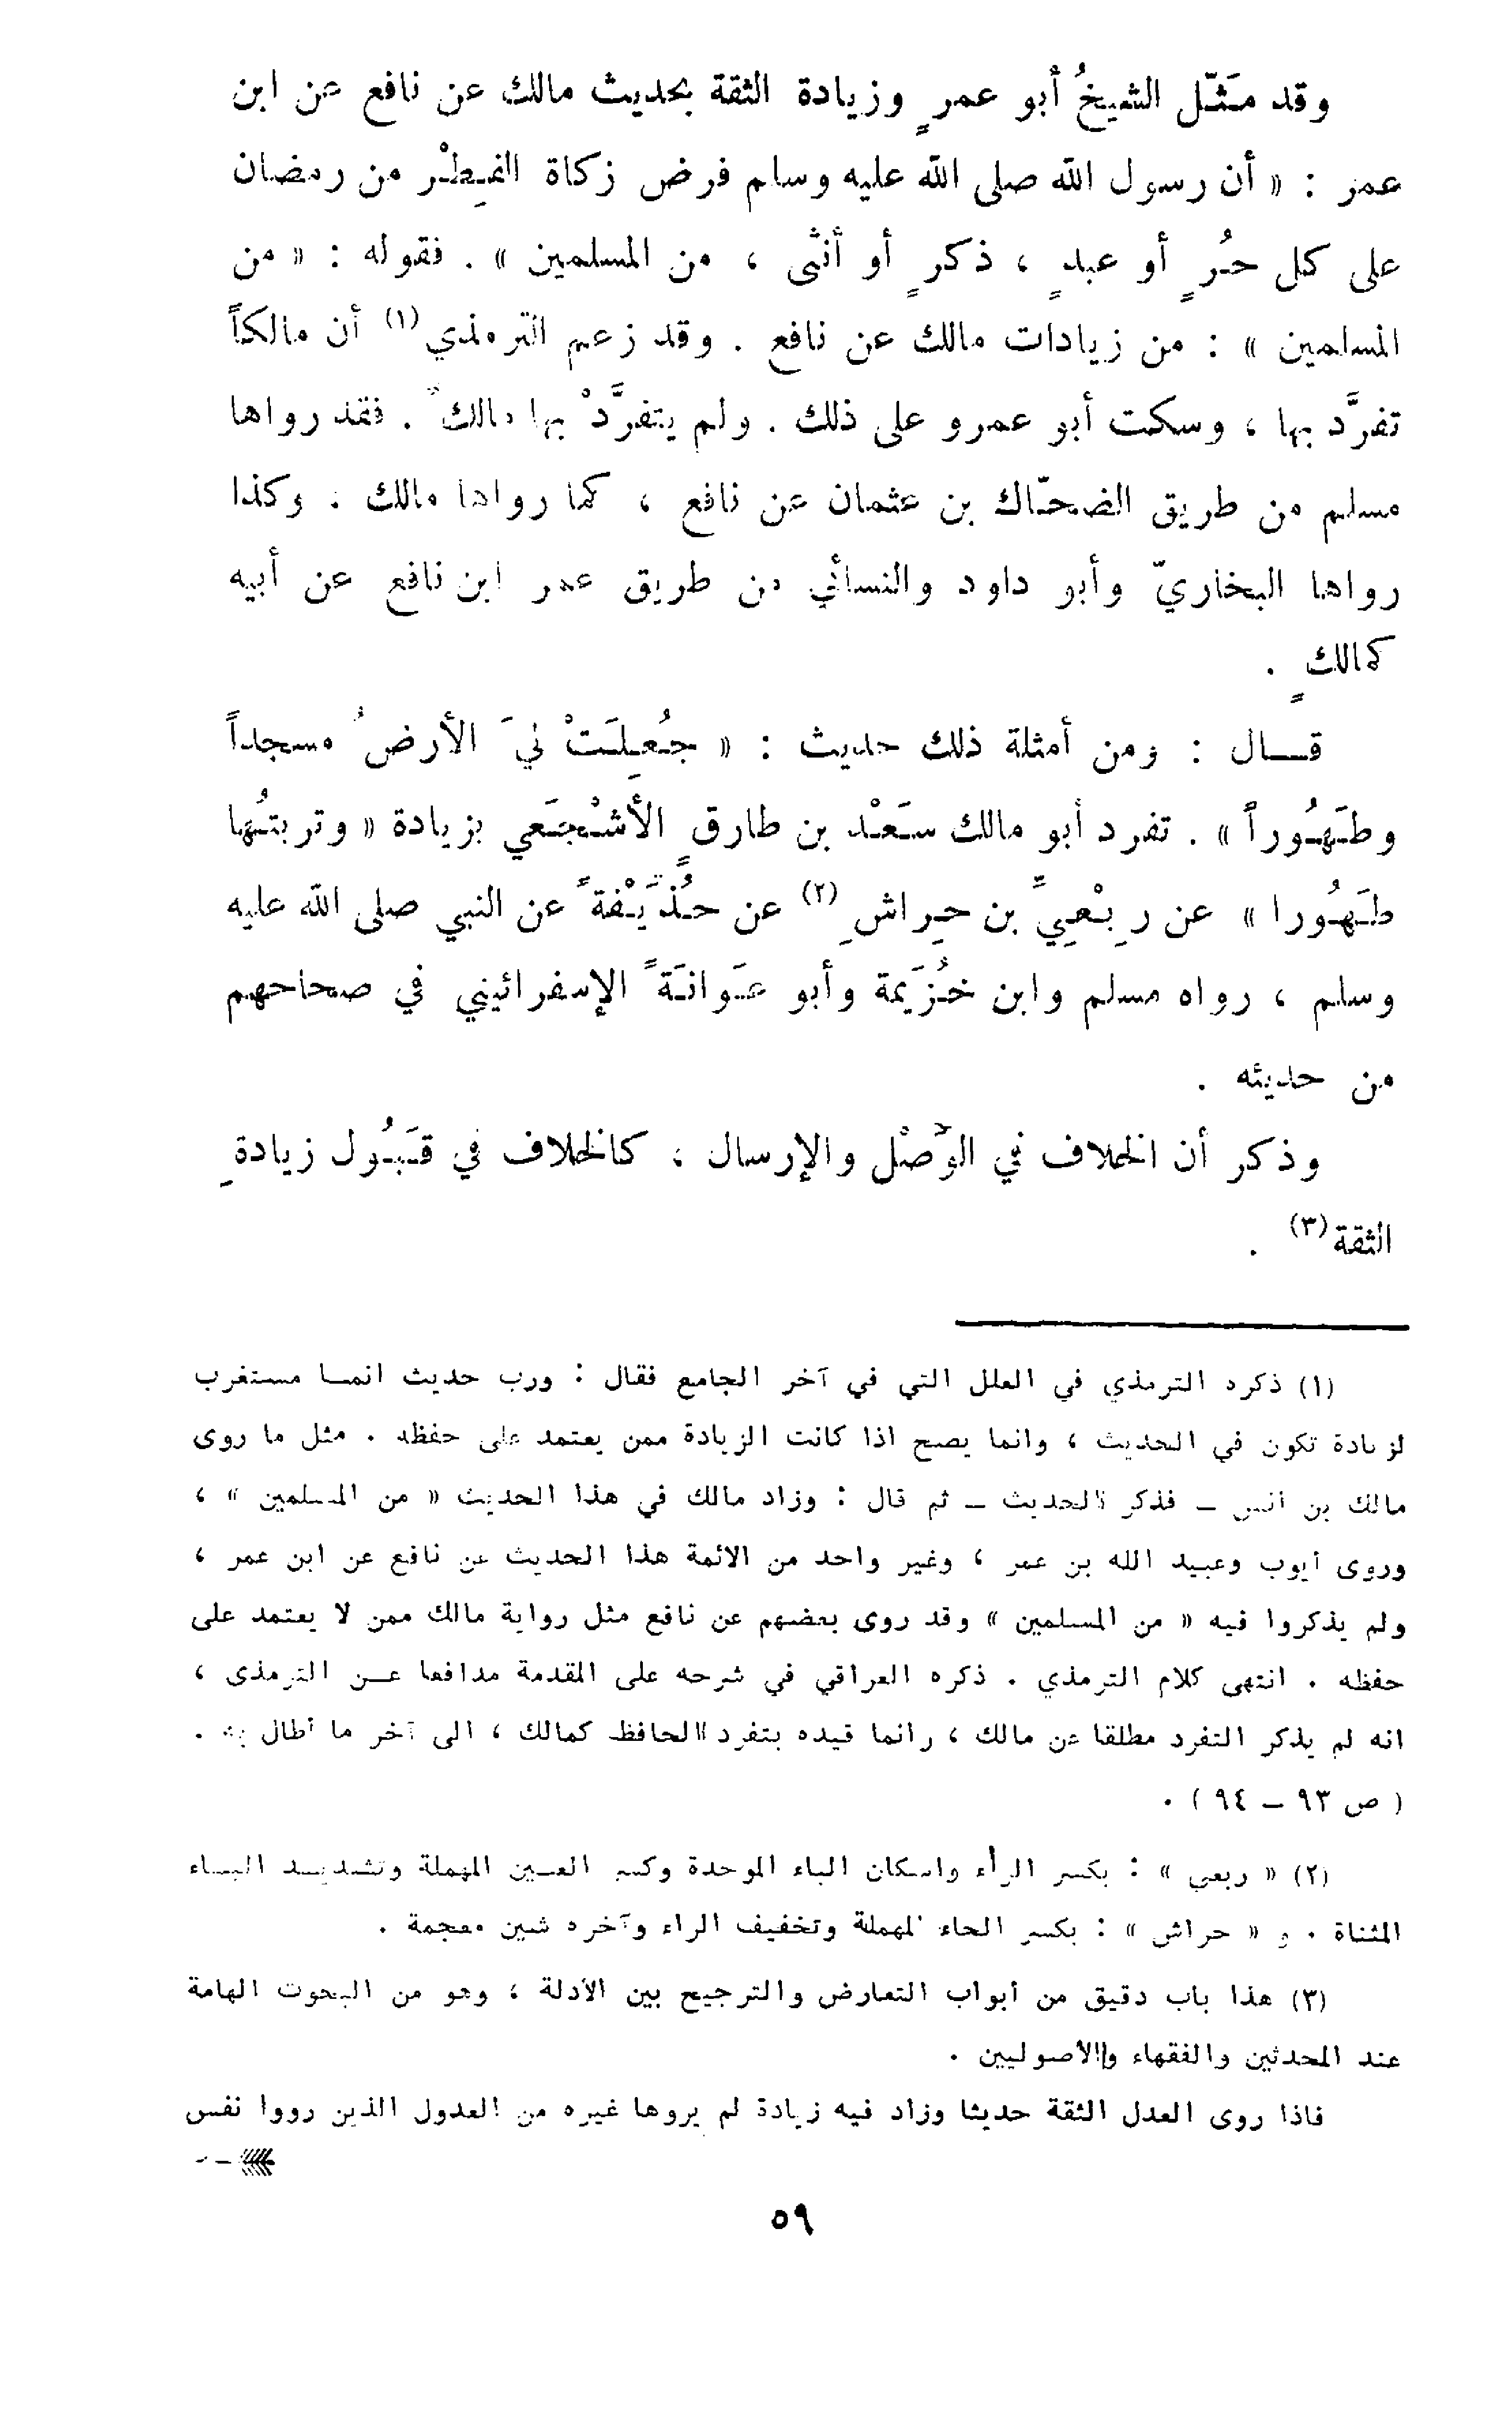 وقد مَثّل الشيخُ أبو عمرٍ وزيادة الثقة بحديث مالك عن نافع عن ابن
عمر : « أن رسول الله صلى الله عليه وسلم فرض زكاة الفِطْر من رمضان
على كل حُرٍ أو عبدٍ ، ذكرٍ أو أنثى ، من المسلمين » . فقوله : « من
المسلمين » : من زيادات مالك عن نافع . وقد زعم الترمذي (١) أن مالكاً
تفرَّد بها ، وسكت أبو عمرو على ذلك . ولم يتفرَّدْ بها مالكٌ . فقد رواها
مسلم من طريق الضحّاك بن عثمان عن نافع ، كما رواها مالك . وكذا
رواها البخاريّ وأبو داود والنسائي من طريق عمر ابن نافع عن أبيه
كمالكٍ .
قـــال : ومن أمثلة ذلك حديث : « جُعِلَتْ ليَ الأرضُ مسجداً
وطَهُوراً » . تفرد أبو مالك سَعْد بن طارقٍ الأشْجَعي بزيادة « وتربتُها
طَهُورا » عن رِبْعِيِّ بن حِراشٍ (٢) عن حُذَيْفةَ عن النبي صلى الله عليه
وسلم ، رواه مسلم وابن خُزَيمة وأبو عَوانَةَ الإسفرائيني في صحاحهم
من حديثه .
وذكر أن الخلاف في الوَصْل والإرسال ، كالخلاف في قَبُول زيادةِ
الثقة (٣) .
(١) ذكره الترمذي في العلل التي في آخر الجامع فقال : ورب حديث انمـا مستغرب
لزيادة تكون في الحديث ، وانما يصح اذا كانت الزيادة ممن يعتمد على حفظه . مثل ما روى
مالك بن أنس – فذكر الحديث – ثم قال : وزاد مالك في هذا الحديث « من المسلمين » ،
وروى أيوب وعبيد الله بن عمر ، وغير واحد من الائمة هذا الحديث عن نافع عن ابن عمر ،
ولم يذكروا فيه « من المسلمين » وقد روى بعضهم عن نافع مثل رواية مالك ممن لا يعتمد على
حفظه . انتهى كلام الترمذي . ذكره العراقي في شرحه على المقدمة مدافعا عـن الترمذى ،
انه لم يذكر التفرد مطلقا عن مالك ، وانما قيده بتفرد الحافظ كمالك ، الى آخر ما أطال به .
( ص ٩٣ – ٩٤ ) .
(٢) « ربعي » : بكسر الرأء واسكان الباء الموحدة وكسر العـين المهملة وتشديـد اليـاء
المثناة . و « حراش » : بكسر الحاء المهملة وتخفيف الراء وآخره شين معجمة .
(٣) هذا باب دقيق من أبواب التعارض والترجيح بين الأدلة ، وهو من البحوث الهامة
عند المحدثين والفقهاء والاصوليين .
فاذا روى العدل الثقة حديثا وزاد فيه زيادة لم يروها غيره من العدول الذين رووا نفس
٥٩